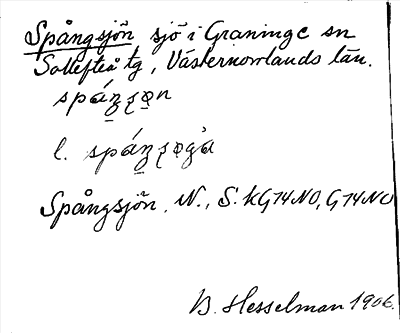 Spångsjön sjö i Graninge sn
Sollefteå tg, Västernorrlands län.
l.
Spångsjön. N., S. kG74NO, G74NO
B. Hesselman 1906.